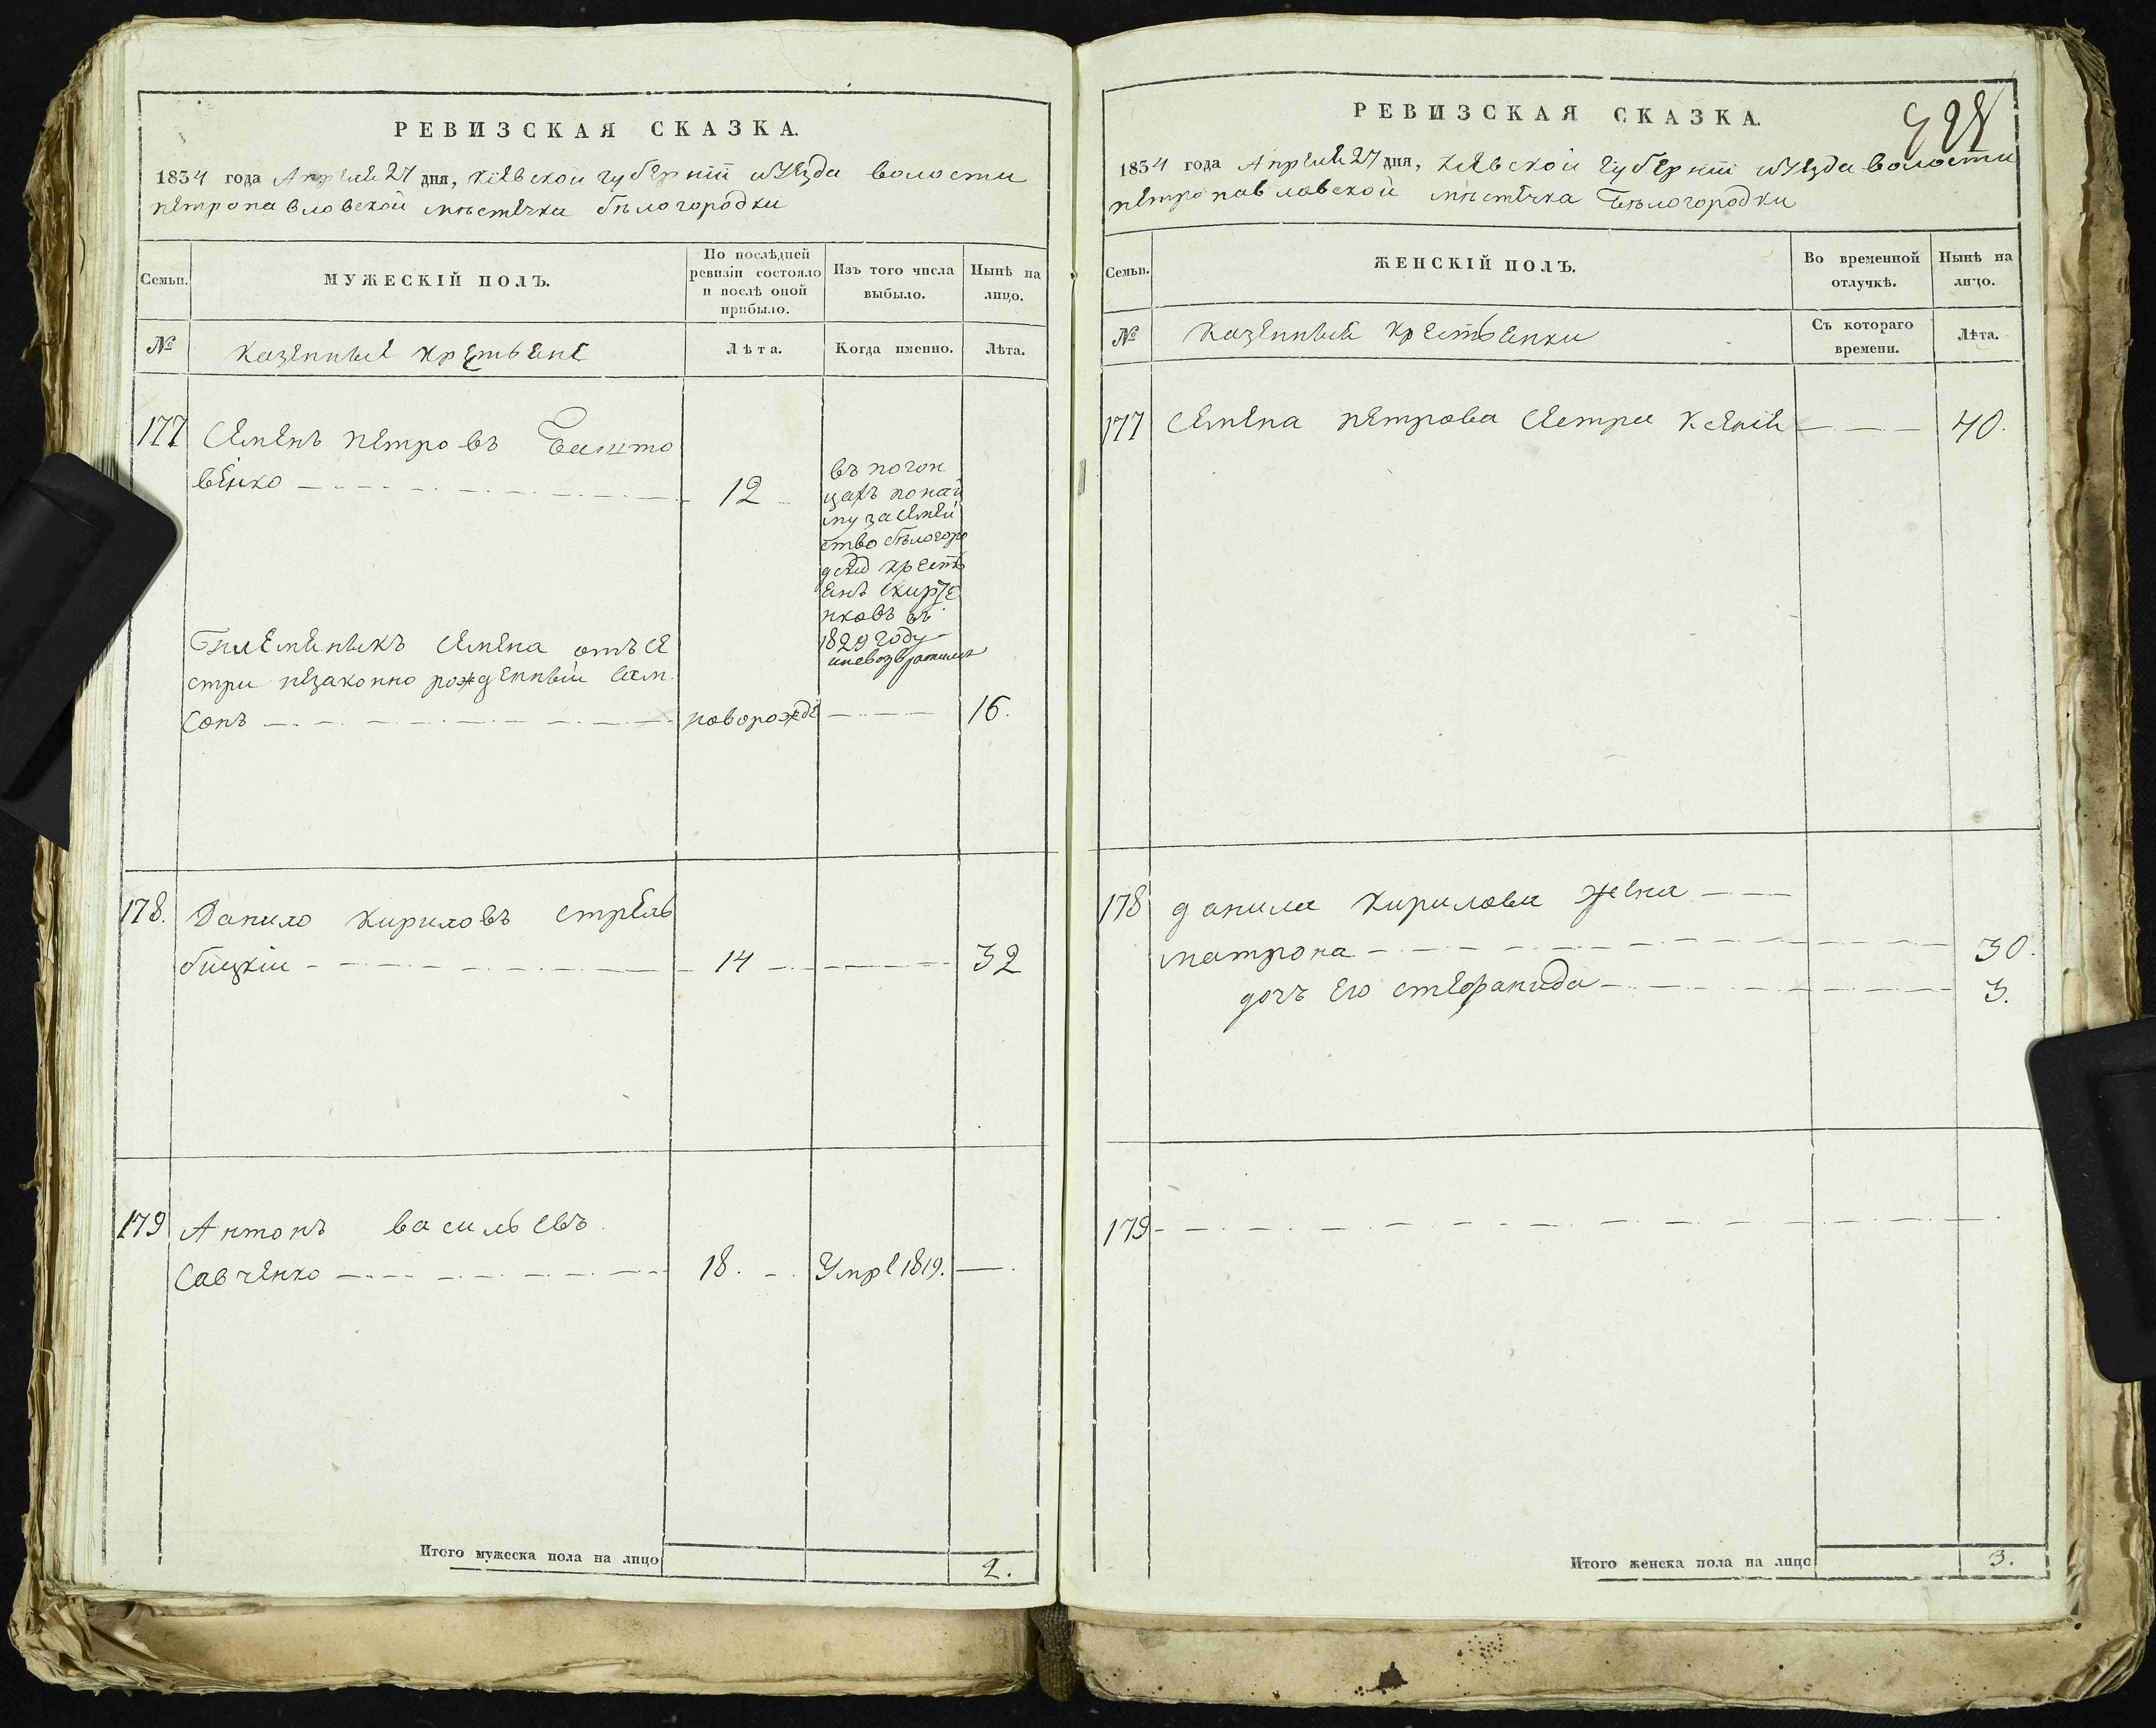 РЕВИЗСКАЯ СКАЗКА.
1834 года Апреля 27 дня, Кіевской губерніи и Уезда волости
петропавловской местечка белогородки
Семьи.
МУЖЕСКІЙ ПОЛЪ.
По послѣдней
ревизіи состояло
и послѣ оной
прибыло.
Изъ того числа
выбыло.
Нынѣ на
лицо.
№
Казенные крестьяне
Лѣта.
Когда именно.
Лѣта.
177
Семенъ петровъ
венко
12
въ погон
цахъ по най
му за семей
ство белогоро
крестъ
янъ
нковъ въ
1829 году
и невозвратился
Племеникъ Семена отъ се
стри незаконно рожденный Сам
сонъ
новорожде
16.
178.
Данило Кириловъ стрель
бицкій
14
32
179
Антонъ васильевъ
Савченко
18.
Умре 1819.
Итого мужеска пола на лицо
2.
РЕВИЗСКАЯ СКАЗКА.
1834 года Апреля 27 дня, Кіевской губерніи и Уезда волости
петропавловской местечка Белогородки
Семьи.
ЖЕНСКІЙ ПОЛЪ.
Во временной
отлучкѣ.
Нынѣ на
лицо.
№
Казенные крестьянки
Съ котораго
времени.
Лѣта.
177
Семена петрова сестра Ксенія
40.
178
данила Кирилова жена
матрона
30.
дочъ его стефанида
3.
179
Итого женска пола на лицо
3.